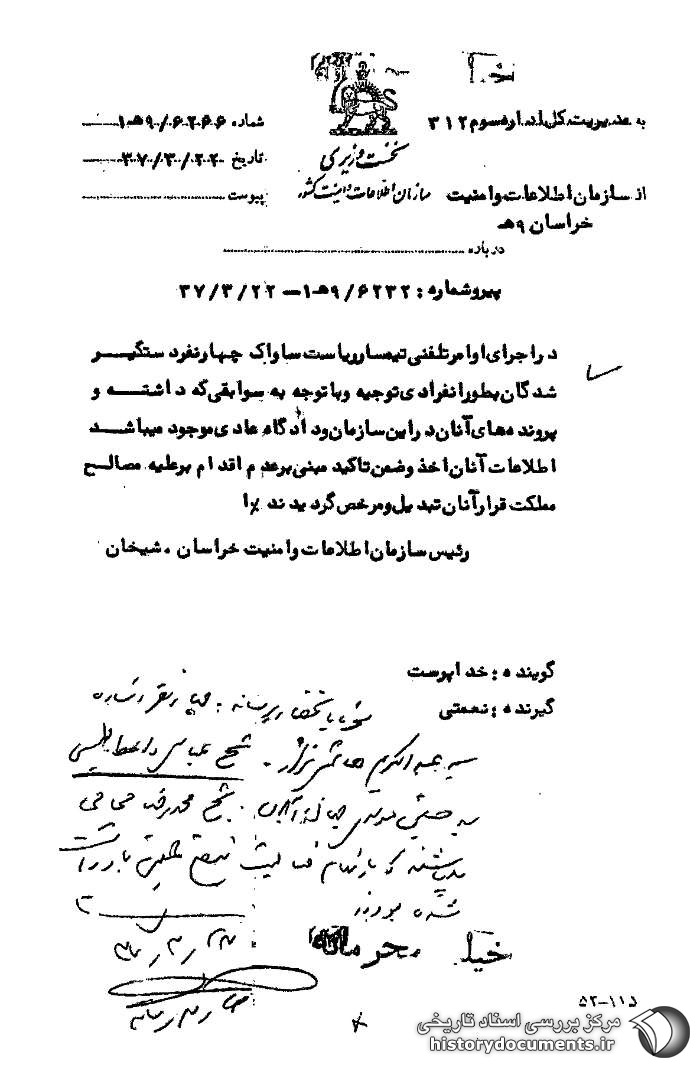 به مدیریت کل اداره سوم ۳۱۲
شماره ۶۲۶۶/۹هـ۱
نخست وزیری
تاریخ ۳۷/۳/۲۲
از سازمان اطلاعات و امنیت
سازمان اطلاعات و امنیت کشور
پیوست
خراسان ۹هـ
درباره
پیرو شماره : ۶۲۳۲/۹هـ۱ – ۳۷/۳/۲۲
در اجرای اوامر تلفنی تیمسار ریاست ساواک چهار نفر دستگیر
شدگان بطور انفرادی توجیه و با توجه به سوابقی که داشته و
پرونده های آنان در این سازمان و دادگاه عادی موجود میباشد
اطلاعات آنان اخذ و ضمن تاکید مبنی بر عدم اقدام بر علیه مصالح
مملکت قرار آنان تبدیل و مرخص گردیدند
رئیس سازمان اطلاعات و امنیت خراسان . شیخان
گوینده : خداپوست
گیرنده : نعمتی
نفر
سید عبدالکریم هاشمی نژاد . شیخ عباس واعظ طبسی
شیخ محمدرضا محامی
شده بودند
خیلی محرمانه
۵۲-۱۱۵
مرکز بررسی اسناد تاریخی
historydocuments.ir